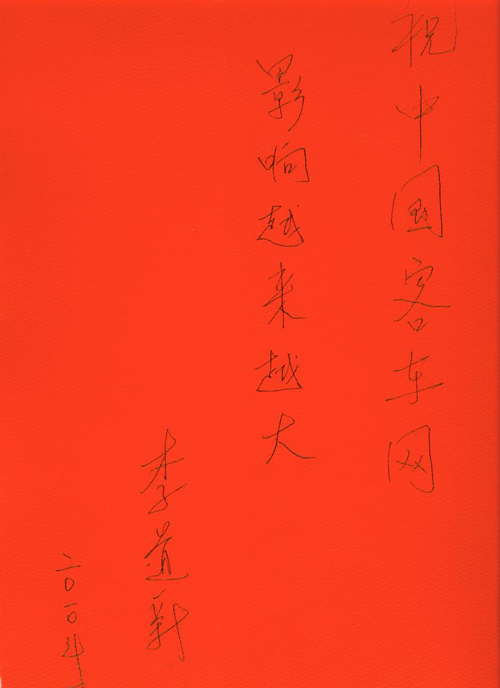 祝中国客车网
影响越来越大
李道新
二〇一〇年